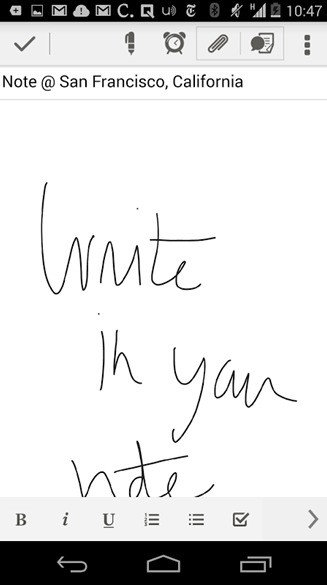 10:47
Note @ San Francisco, California
Write
in your
note
B i U